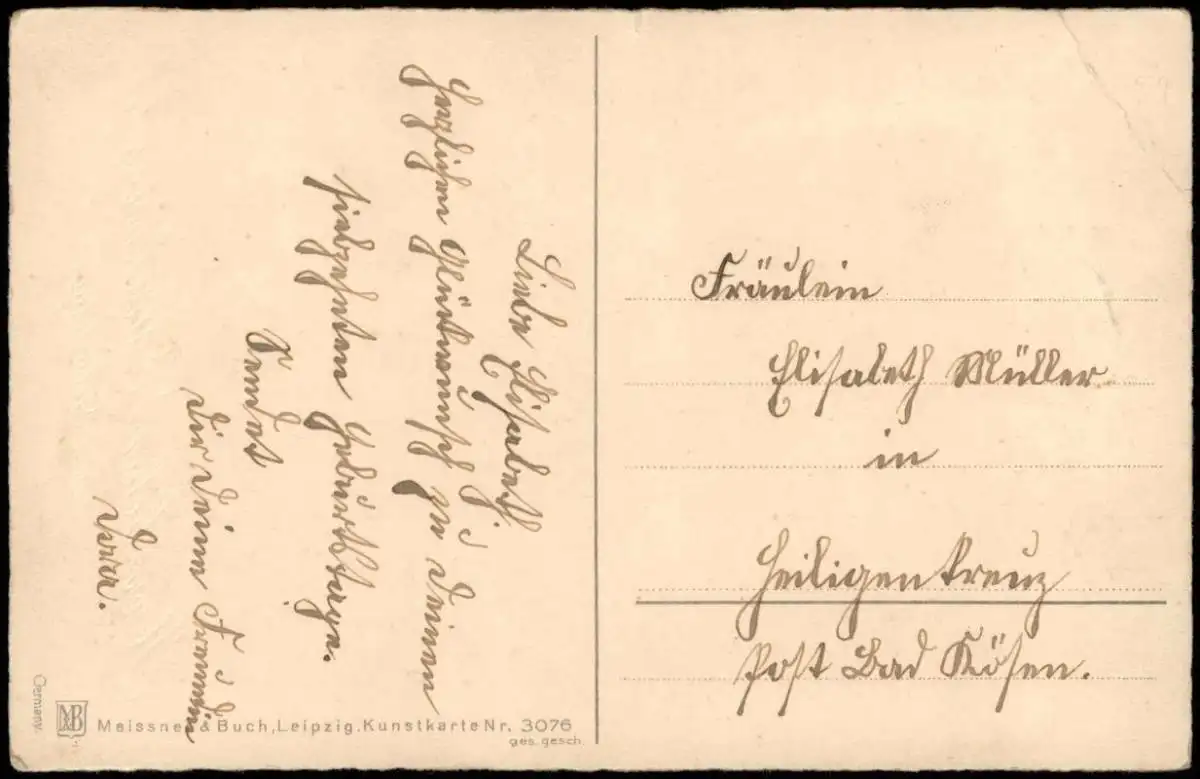 Liebe Elisabeth.
Herzlichen Glückwunsch zu Deinen
siebzehnten Geburtstage.
Sendet
Dir Deine Freundin
Dora.
Fräulein
Elisabeth Müller
in
Heiligenkreuz
Post Bad Kösen.
Germany.
MB
Meissner & Buch, Leipzig. Kunstkarte Nr. 3076
ges. gesch.